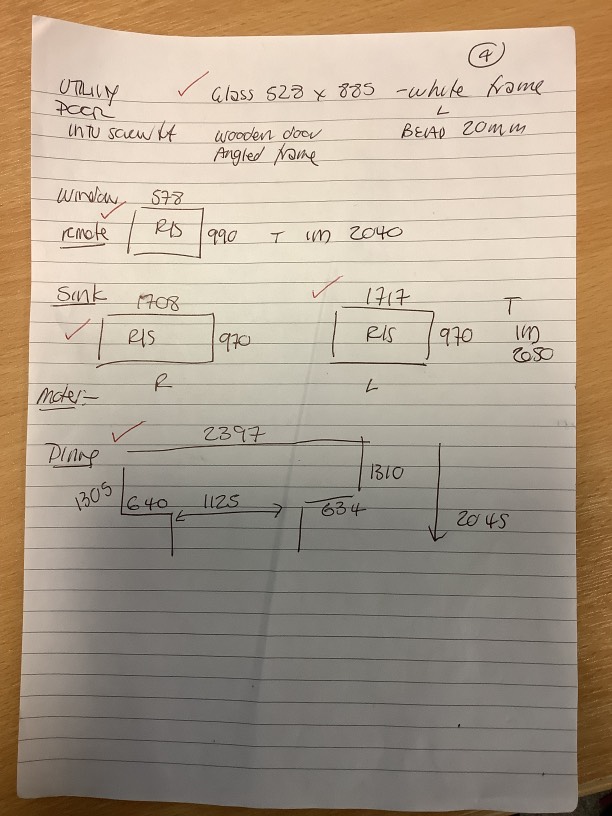 4
UTILITY Glass 528 x 885 - white frame
DOOR L
INTU SCREW fit wooden door BEAD 20mm
Angled frame
Window 578
remote R/S 990 T IM 2040
Sink 1708 1717 T
R/S 970 R/S 970 IM
2050
R L
Motor:-
Dining 2397
1305 1310
640 1125 634
2045